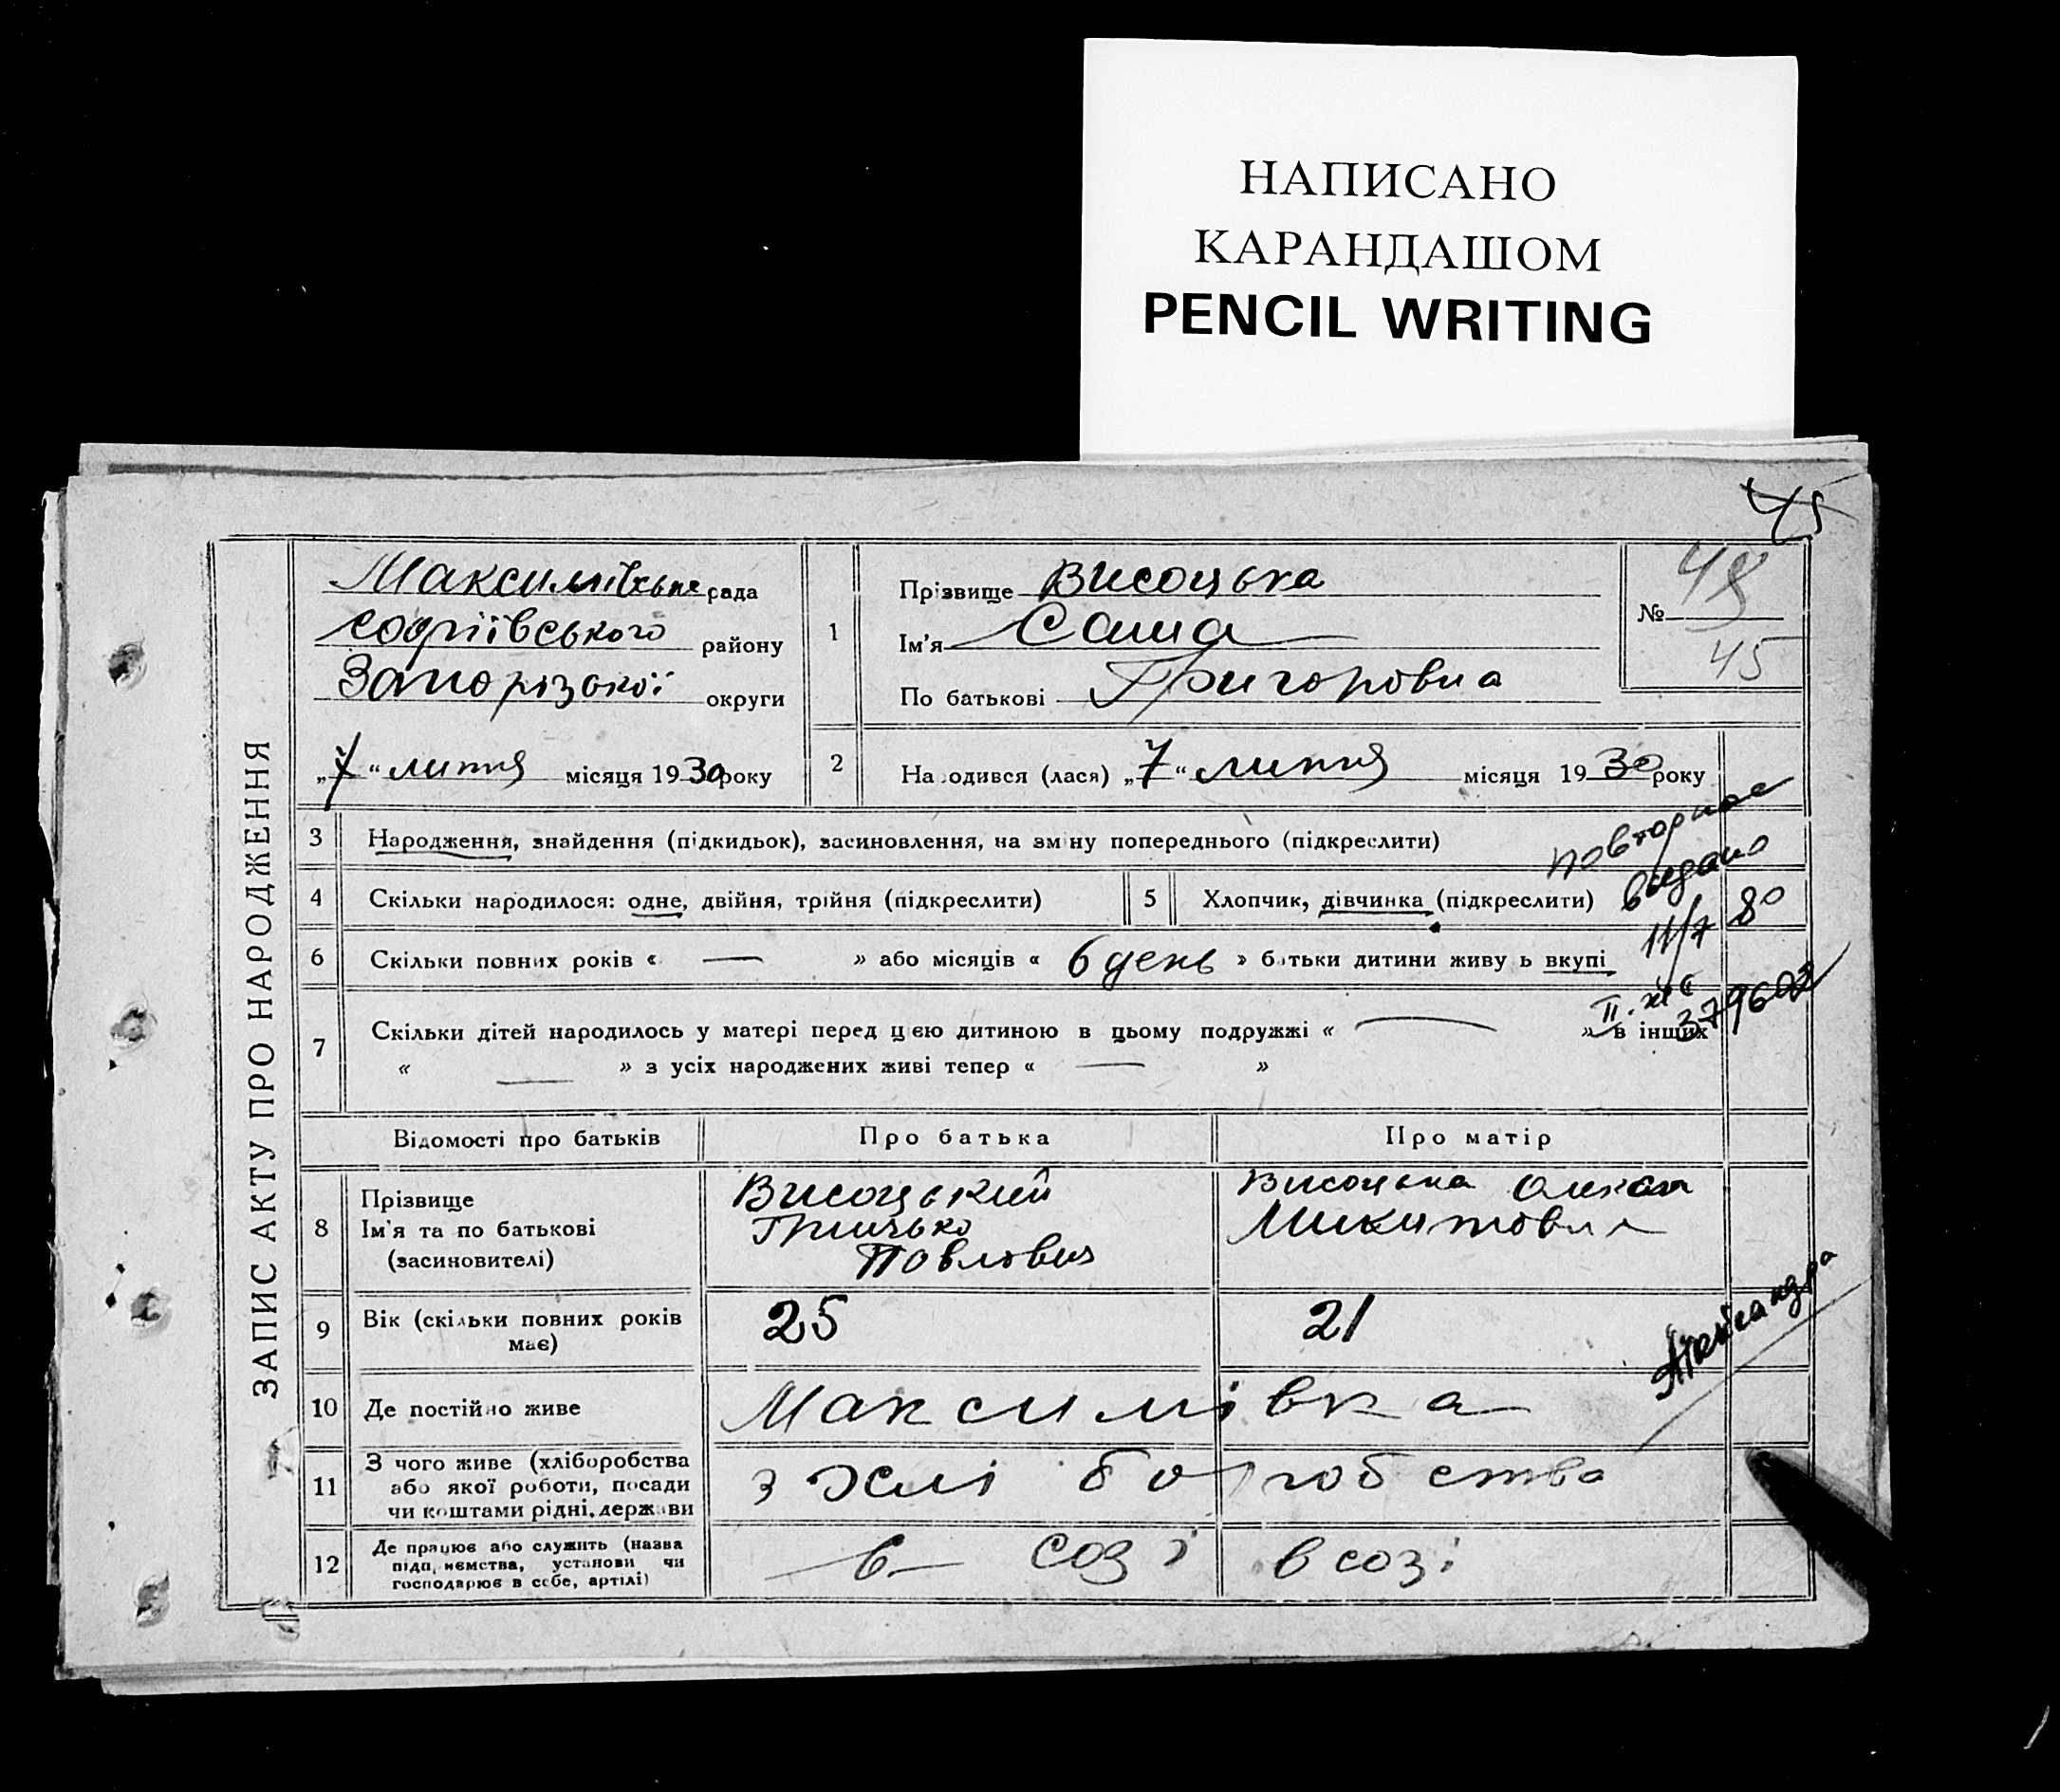 НАПИСАНО
КАРАНДАШОМ
PENCIL WRITING
45
ЗАПИС АКТУ ПРО НАРОДЖЕННЯ
Максимівська рада
Софіївського району
Запорізької округи
„7“ липня місяця 1930 року
1
Прізвище Висоцька
Ім'я Саша
По батькові Григоровна
№ 48
45
2 Народився (лася) „7“ липня місяця 1930 року
3 Народження, знайдення (підкидьок), засиновлення, на зміну попереднього (підкреслити)
повторное
выдано
11/7 80
II-
379602
4 Скільки народилося: одне, двійня, трійня (підкреслити)
5 Хлопчик, дівчинка (підкреслити)
6 Скільки повних років « — » або місяців « 6 день » батьки дитини живуть вкупі
7 Скільки дітей народилось у матері перед цією дитиною в цьому подружжі « — » в інших
« — » з усіх народжених живі тепер « — »
Відомості про батьків Про батька Про матір
8 Прізвище
Ім'я та по батькові
(засиновителі)
Висоцький
Грицько
Павлович
Висоцька
Микитовна
9 Вік (скільки повних років
має)
25 21
Александра
10 Де постійно живе Максимівка
11 З чого живе (хліборобства
або якої роботи, посади
чи коштами рідні, держави
з хліборобства
12 Де працює або служить (назва
підприємства, установи чи
господарює в себе, артілі)
в созі в созі